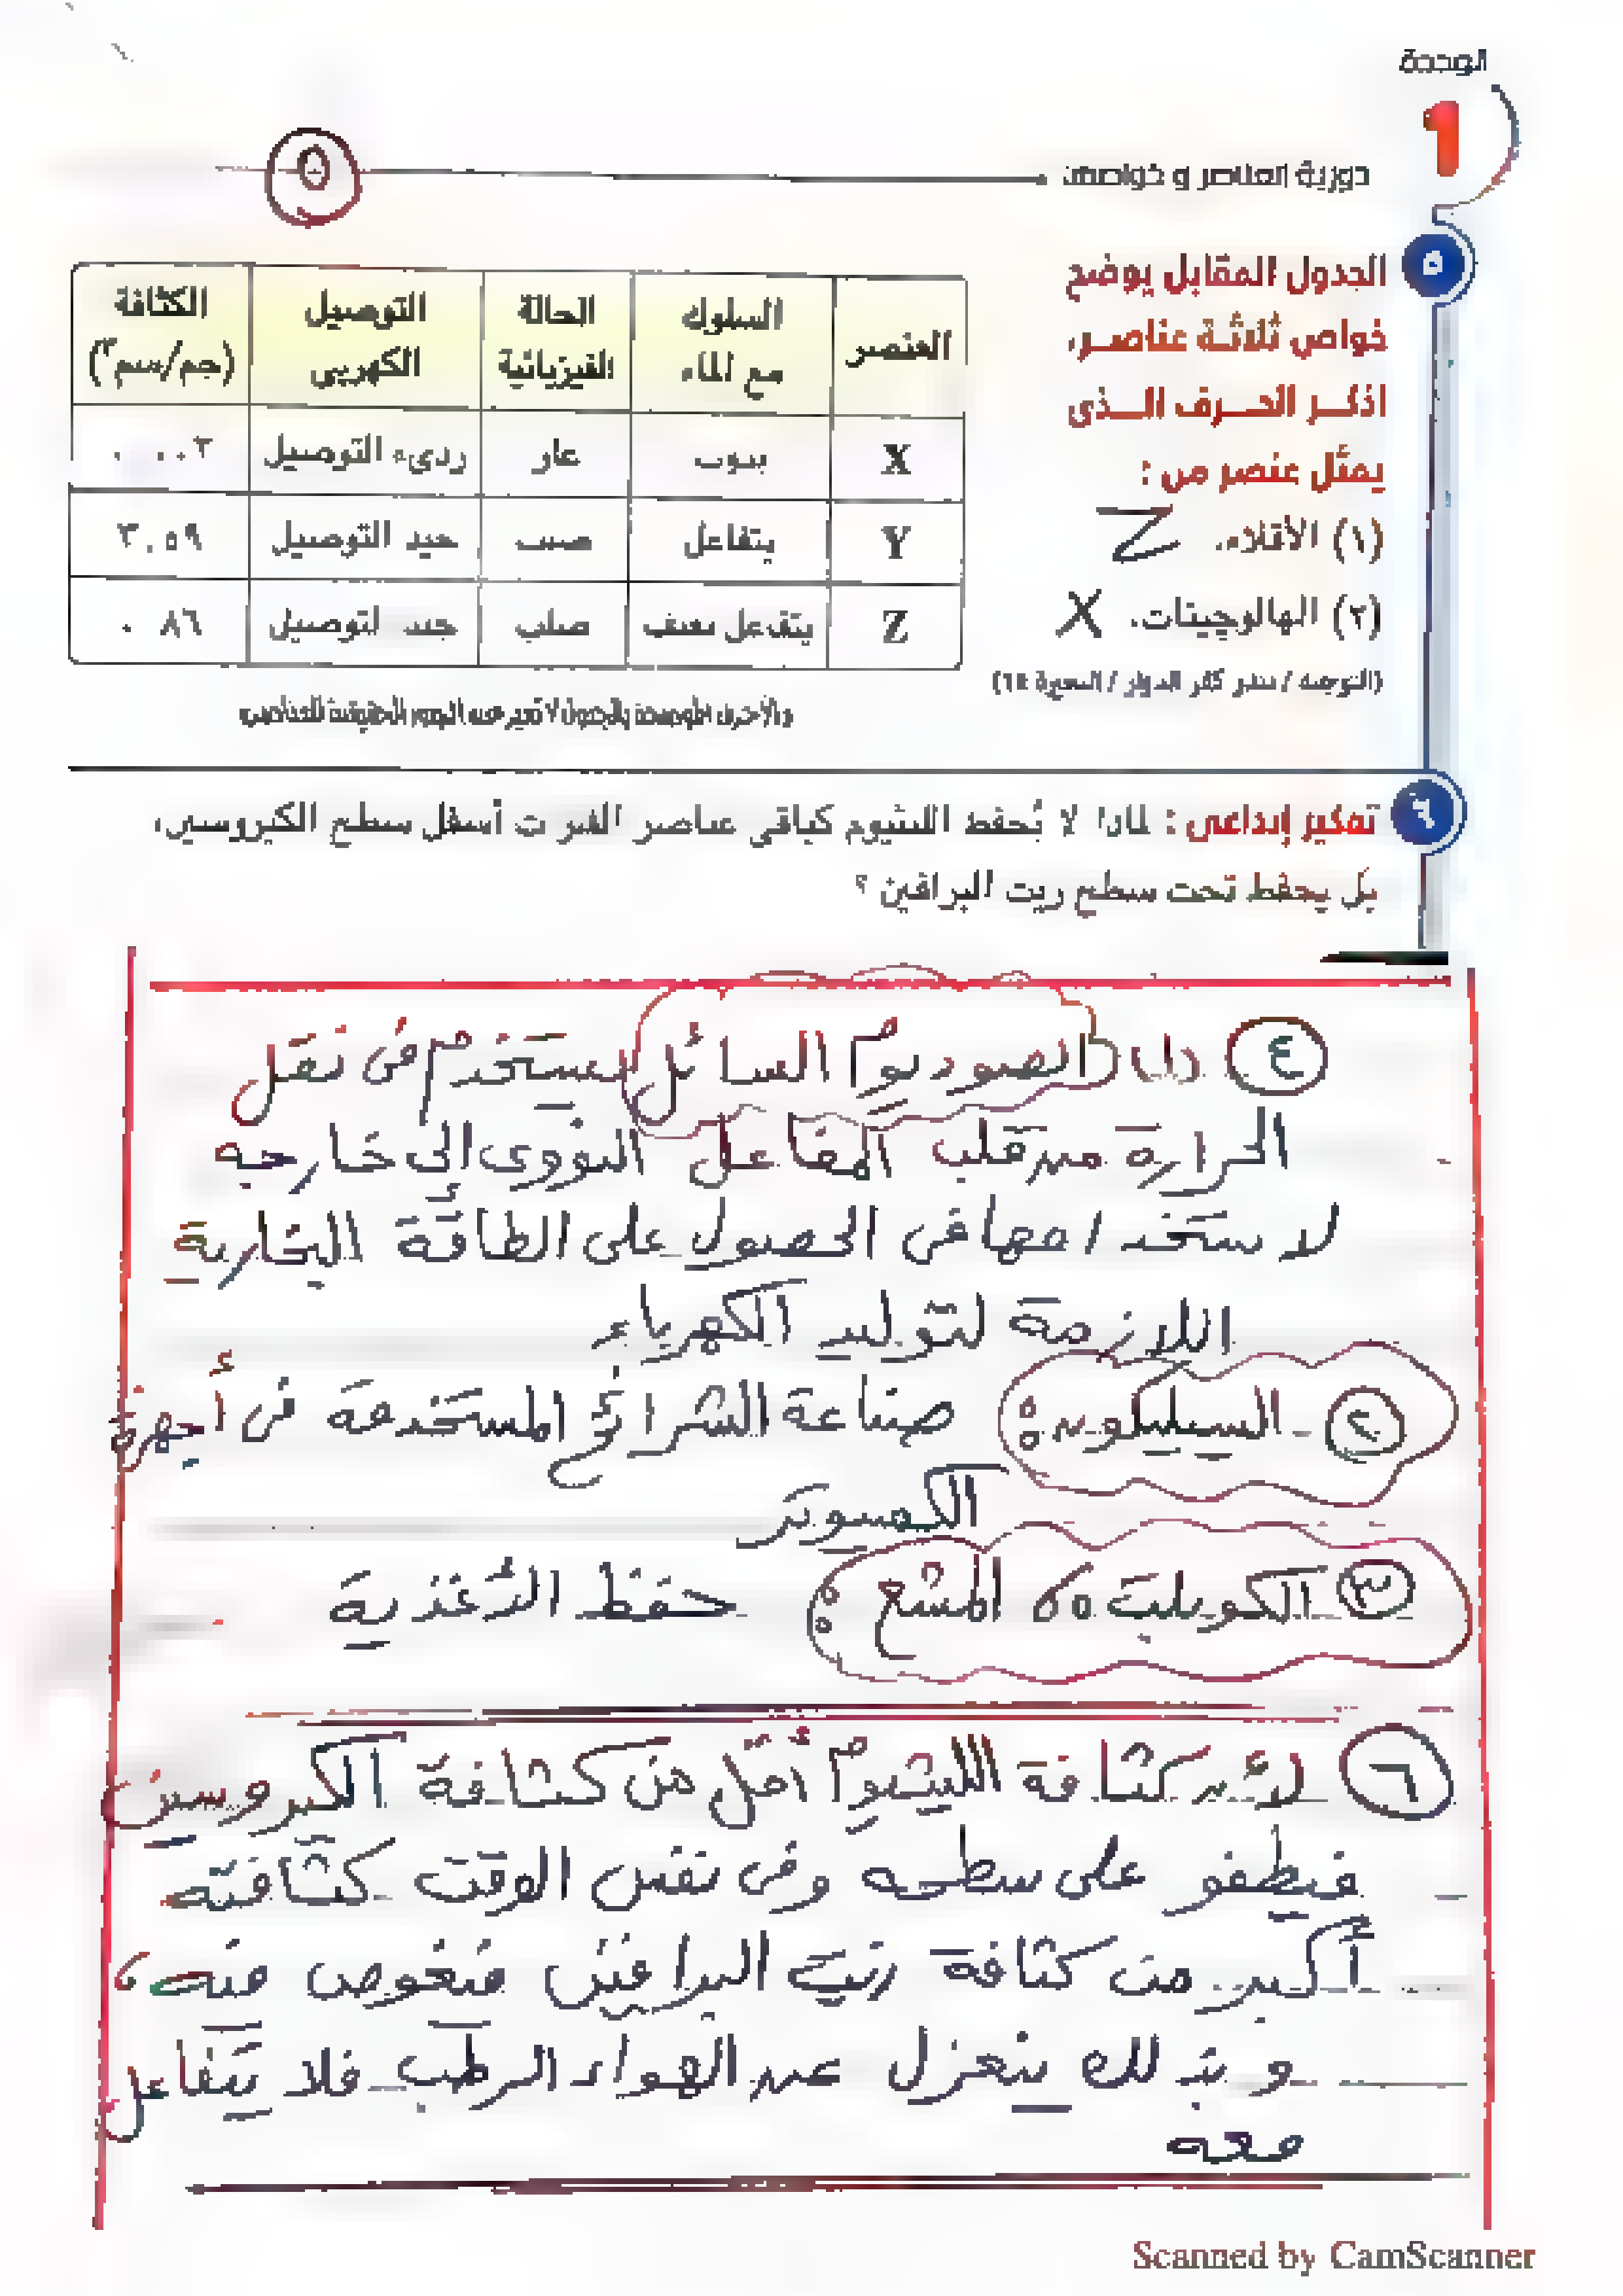 الوحدة
1
دورية العناصر و خواصها
٥
٥ الجدول المقابل يوضح
خواص ثلاثة عناصر،
اذكر الحرف الذى
يمثل عنصر من :
(١) الأقلاء. Z
(٢) الهالوجينات. X
العنصر | السلوك مع الماء | الحالة الفيزيائية | التوصيل الكهربى | الكثافة (جم/سم٣)
X | يذوب | غاز | ردىء التوصيل | ٠.٠٠٣
Y | يتفاعل | صلب | جيد التوصيل | ٣.٥٩
Z | يتفاعل بعنف | صلب | جيد التوصيل | ٠.٨٦
٦ تفكير إبداعى : لماذا لا يُحفظ الليثيوم كباقى عناصر الأقلاء أسفل سطح الكيروسين،
بل يحفظ تحت سطح زيت البرافين ؟
٤ (١) الصوديوم السائل يستخدم فى نقل
الحرارة من قلب المفاعل النووى إلى خارجه
لاستخدامها فى الحصول على الطاقة البخارية
اللازمة لتوليد الكهرباء
٢ - السيليكون : صناعة الشرائح المستخدمة فى أجهزة
الكمبيوتر
٣ الكوبلت ٦٠ المشع : حفظ الأغذية
٦ لأن كثافة الليثيوم أقل من كثافة الكيروسين
فيطفو على سطحه وفى نفس الوقت كثافته
أكبر من كثافة زيت البرافين فيغوص فيه ،
وبذلك ينعزل عن الهواء الرطب فلا يتفاعل
معه
Scanned by CamScanner